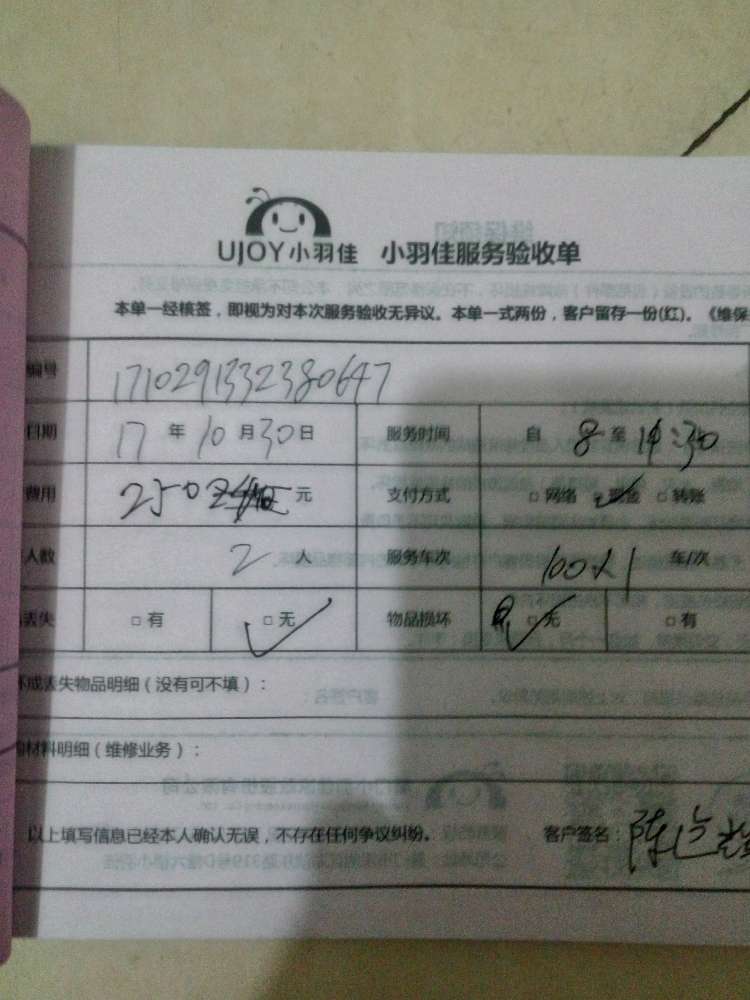 UJOY小羽佳 小羽佳服务验收单
本单一经核签，即视为对本次服务验收无异议。本单一式两份，客户留存一份(红)。《维保
编号 1710291332380647
日期 17 年 10 月 30 日 服务时间 自 8 至 14:30
费用 250 元 支付方式 □ 网络 ✓现金 □ 转账
人数 2 人 服务车次 100×1 车/次
丢失 □ 有 □ 无 ✓ 物品损坏 □ 无 ✓ □ 有
坏或丢失物品明细（没有可不填）：
材料明细（维修业务）：
以上填写信息已经本人确认无误，不存在任何争议纠纷。 客户签名：陈